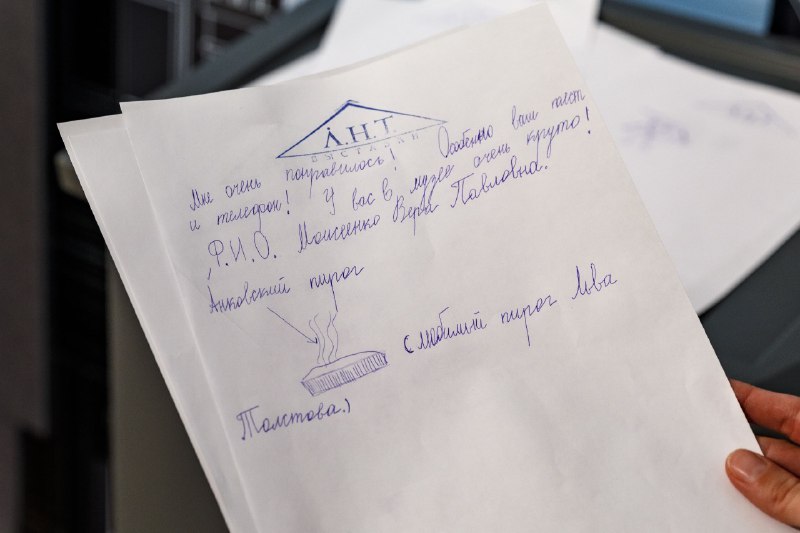 А.Н.Т.
ВЫСТАВКИ
Мне очень понравилось! Особенно ваш квест
и телефон! У вас в музее очень круто!
Ф.И.О. Моисеенко Вера Павловна.
Анковский пирог
(любимый пирог Льва
Толстова.)